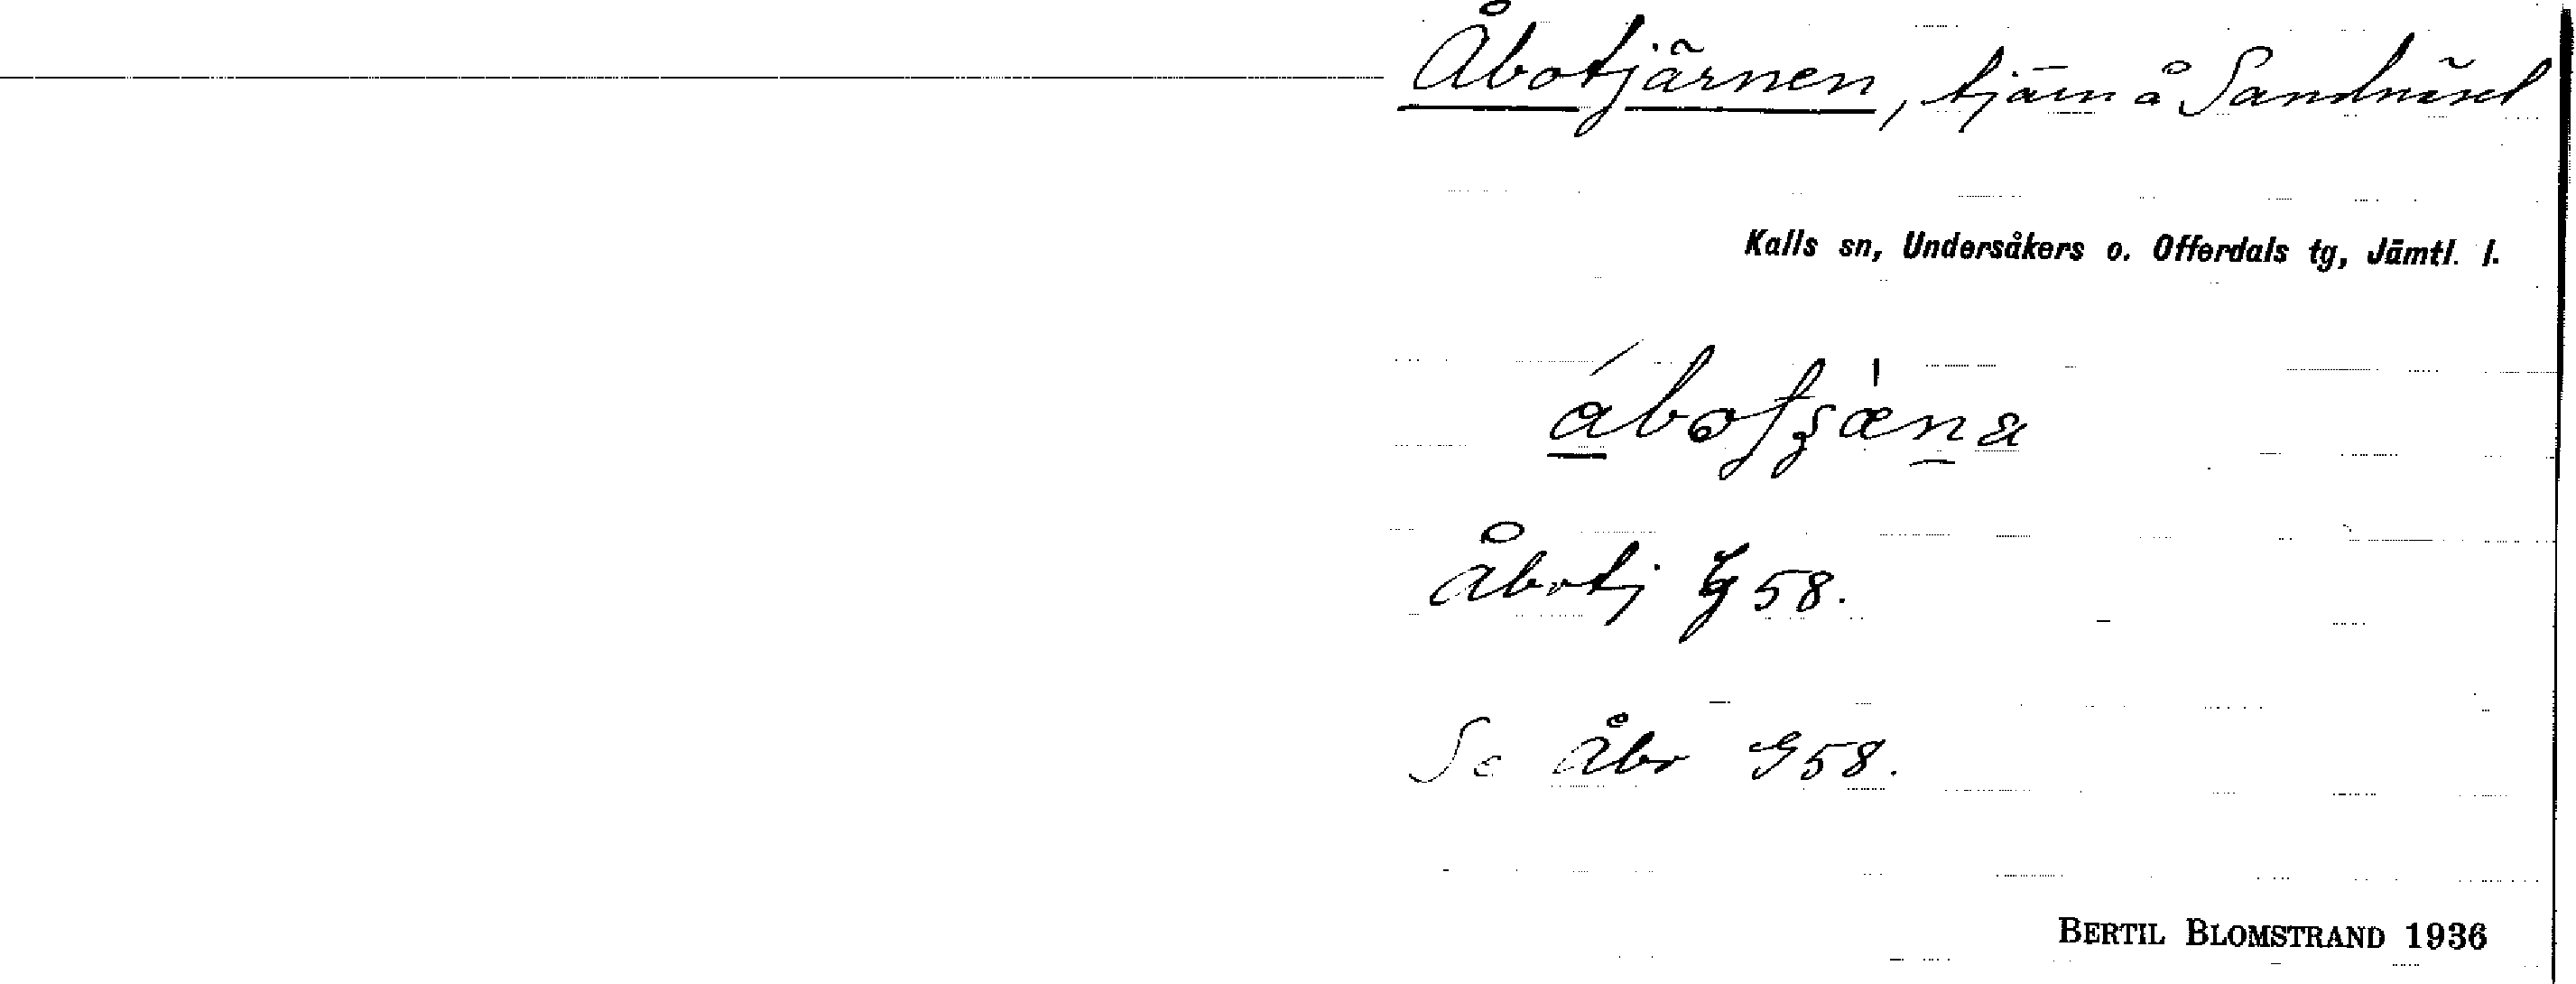 Åbotjärnen, tjärn å Sandnäset
Kalls sn, Undersåkers o. Offerdals tg, Jämtl. l.
Åbotj G 58.
Se Åbo G 58.
BERTIL BLOMSTRAND 1936